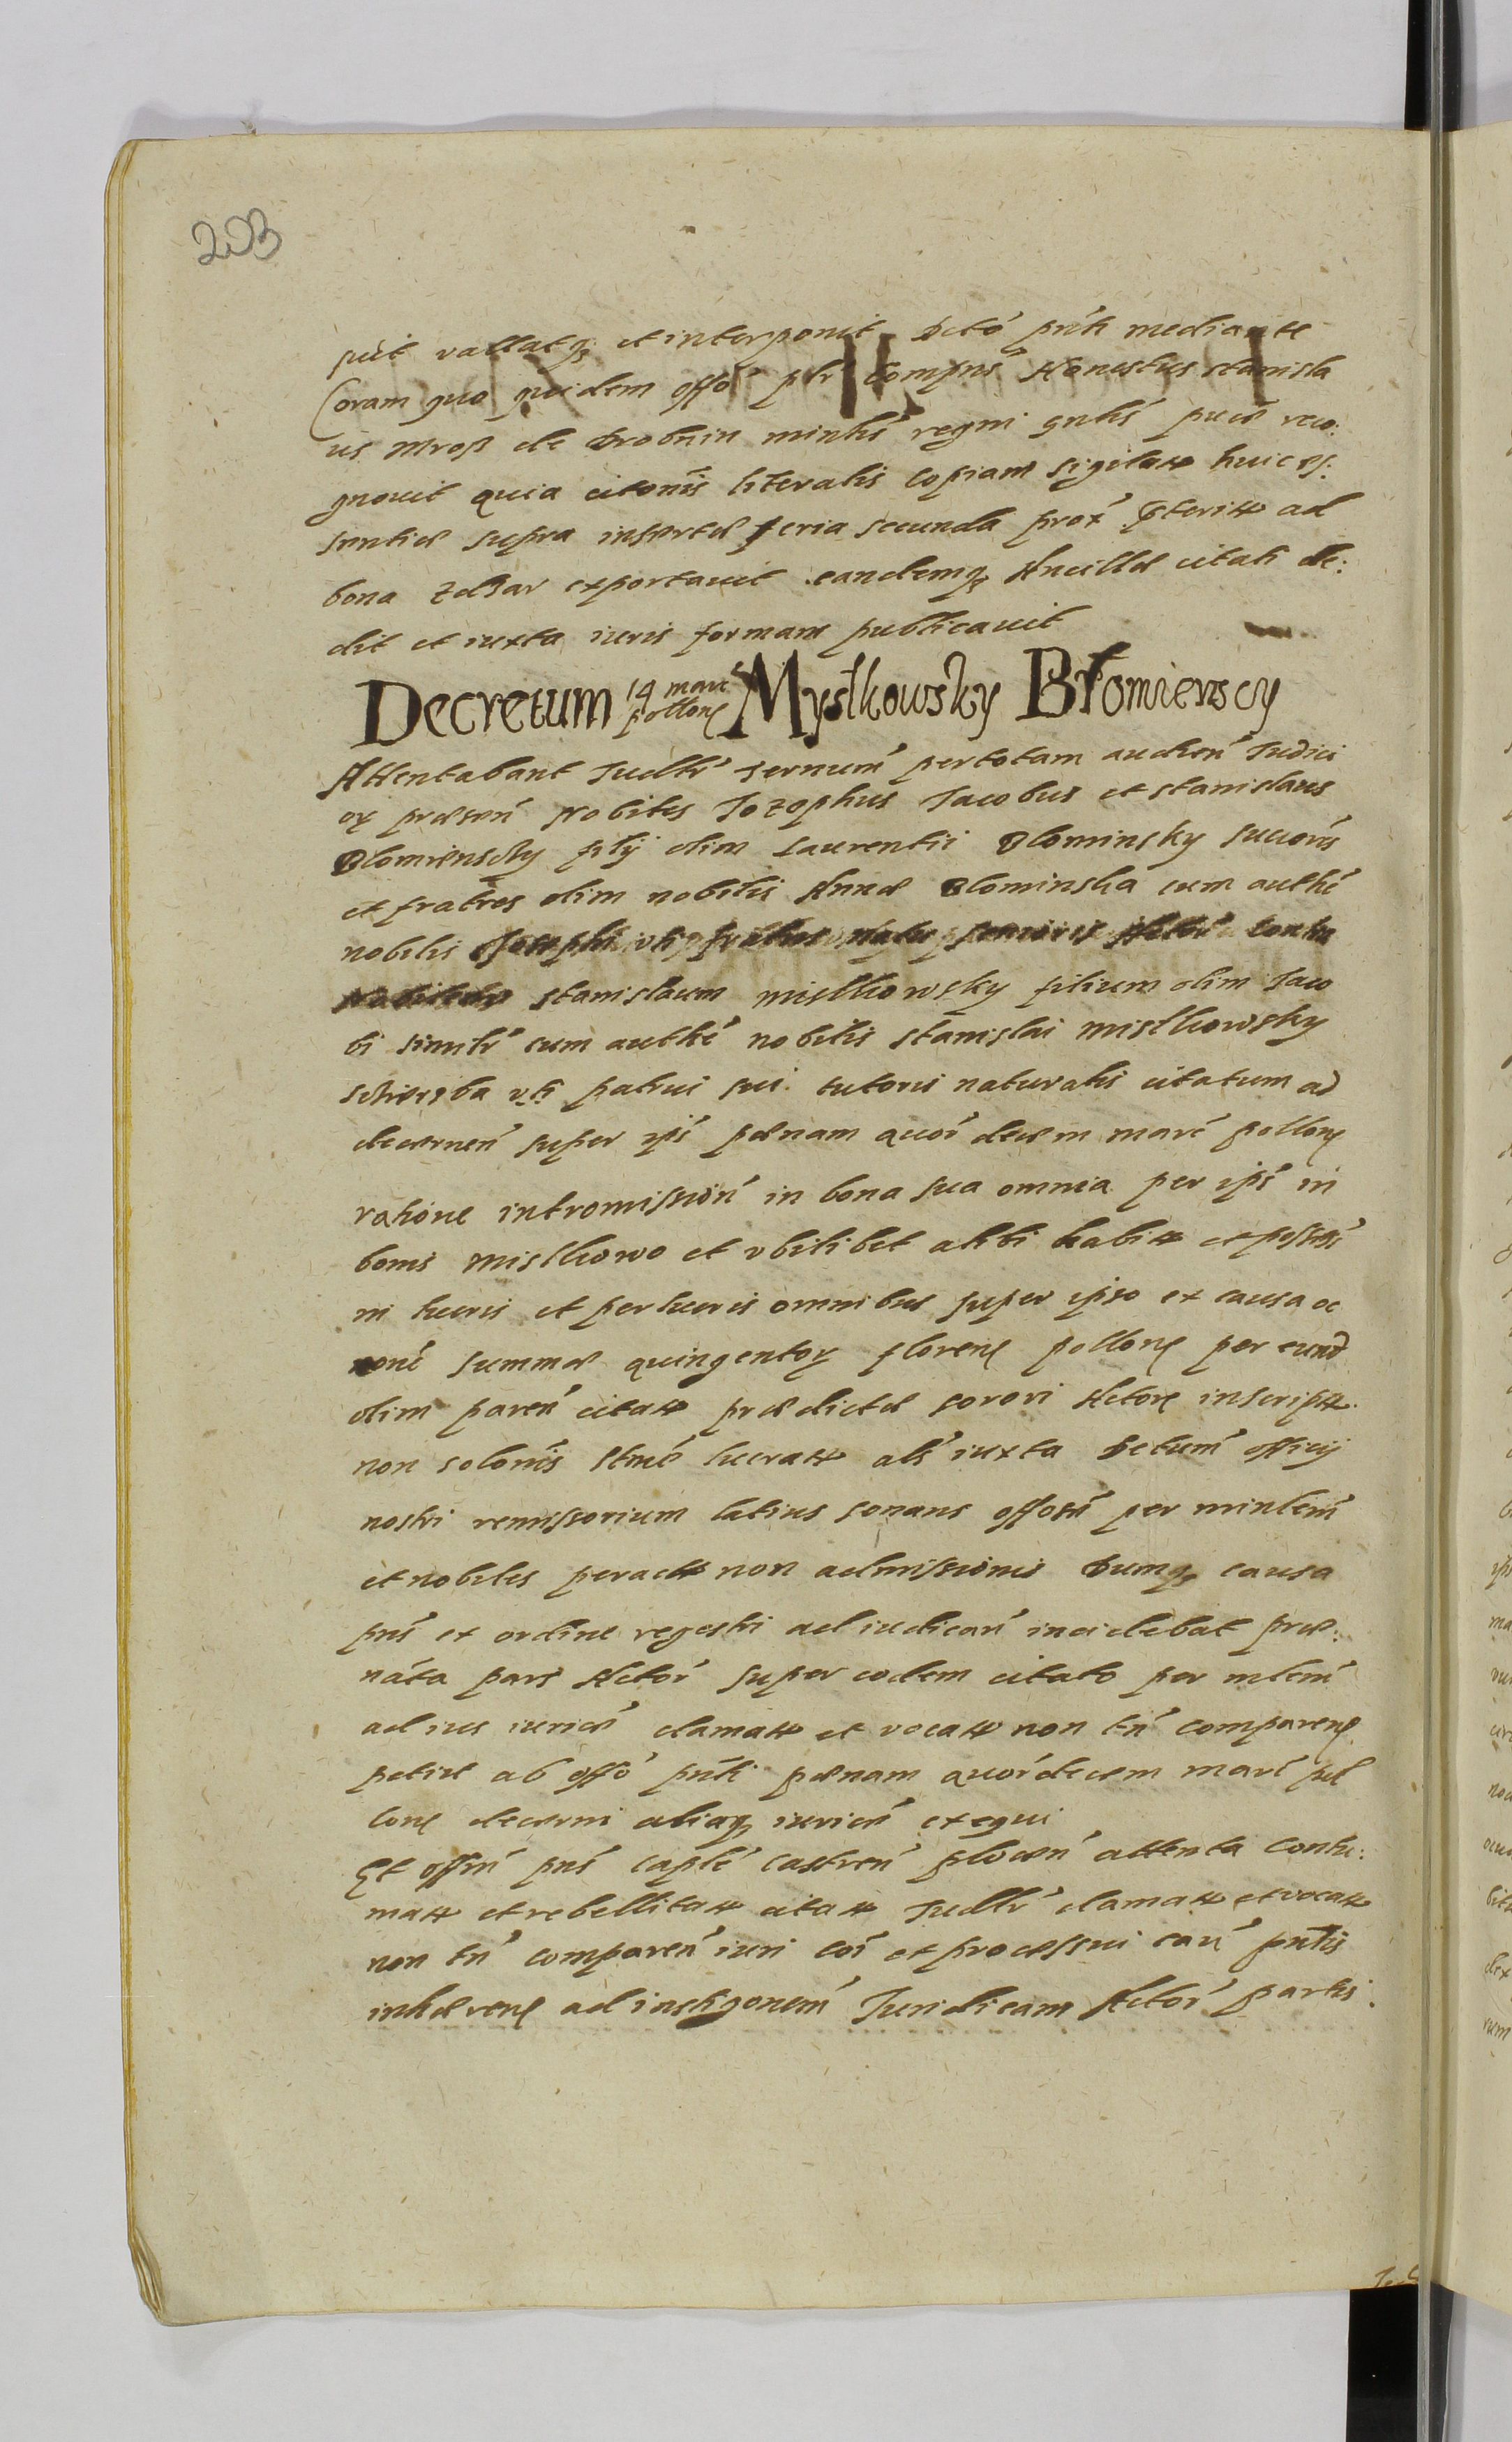 203
suit vallatq et interponit Dcto pnti mediante
Coram quo quidem offo plr Compns Honestus stanisla
us Mroß de Drobnin minlis regni gnlis pucae reco:
gnovit quia citonis literalis Copiam sigilat huic
sentiae supra insertae feria secunda prox pterit ad
bona zdzar exportavit eandemq Ancillae citati de:
dit et iuxta iuris formam publicavit
Decretum 14 marc pollone Mystkowsky Błomienscy
Attentabant Judtr termum per totam audien Judici
ox praesen Nobiles Jozephus Jacobus et stanislaus
Blomiensky filij olim Laurentii Blominsky succoris
et fratres olim nobilis Annae Blominska cum authe
nobilis Josephi uti fratris natu senioris Actor contra
Nobilem stanislaum mistkowsky filium olim Jaco
bi simulr cum authe nobilis stanislai mistkowsky
uti patrui sui tutoris naturalis citatum ad
decernen super ips paenam quor decem marc pollone
ratione intromission in bona sua omnia per ips in
bonis mistkowo et ubilibet alibi habit et possess
in lucris et perlucris omnibus super ipso ex causa
none summae quingentox florene pollone per eund
olim paren citat praedictae sorori Actore inscript
non solonis stme lucrat als iuxta Dctum officij
nostri remissorium latius sonans offosu per minlem
et nobiles peract non admissionis Dumq causa
pns ex ordine regestri ad iudican incidebat prae:
nata pars Actor super eodem citato per mlem
ad ius iurice clamat et vocat non tn comparene
petiit ab offo pnti paenam quordecem marc pol
lone decerni aliaq iurice exequi
Et offm pns caple castren plocen attenta contu:
mat et rebellitat citat Judtr clamat et vocat
non tn comparen iuri coi et processui cau pntis
inhaerene ad instigonem Juridicam Actor partis